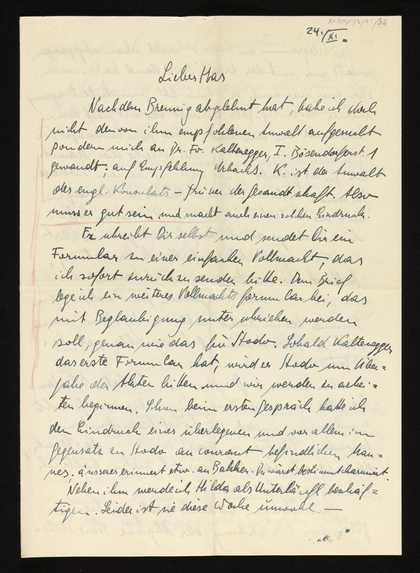 24. XI.
Lieber Has
Nachdem Brennig abgelehnt hat, habe ich doch
nicht den von ihm empfohlenen Anwalt aufgesucht
sondern mich an Dr. Fr. Kaltenegger, I. Bösendorferst. 1
gewandt; auf Empfehlung Urbachs. K. ist der Anwalt
des engl. Konsulats – früher der Gesandtschaft. Also
muss er gut sein und macht auch einen solchen Eindruck.
Er schreibt Dir selbst und sendet Dir ein
Formular zu einer einfachen Vollmacht, das
ich sofort zurückzusenden bitte. Dem Brief
lege ich ein weiteres Vollmachtsformular bei, das
mit Beglaubigung unterschrieben werden
soll, genau wie das für Hodo. Sobald Kaltenegger
das erste Formular hat, wird er Hodo um Über-
gabe der Akten bitten und wir werden zu arbei-
ten beginnen. Schon beim ersten Gespräch hatte ich
den Eindruck eines überlegenen und vor allem im
Gegensatz zu Hodo au courant befindlichen Man-
nes. äusseres erinnert etwas an Bakker.
Neben ihm werde ich Hilda als Unterläufl beschäf-
tigen. Leider ist sie diese Woche unwohl —